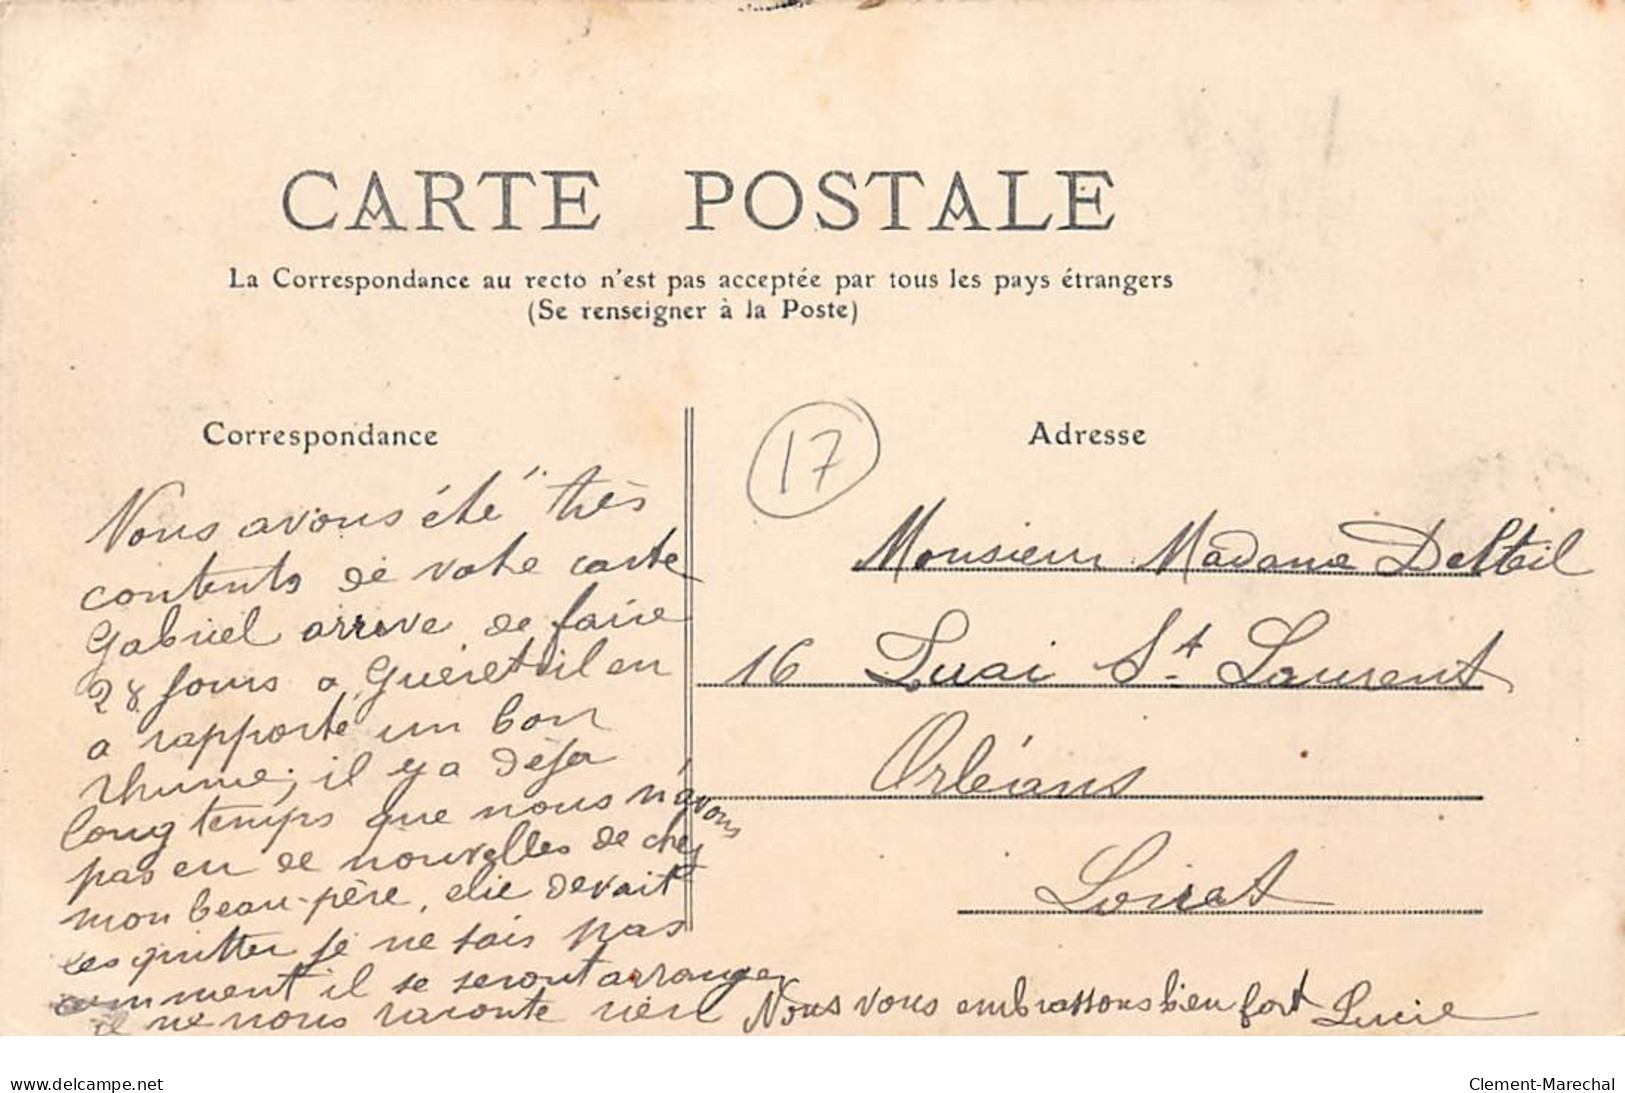 CARTE POSTALE
La Correspondance au recto n'est pas acceptée par tous les pays étrangers
(Se renseigner à la Poste)
Correspondance
Nous avons été très
contents de votre carte
Gabriel arrive de faire
28 jours a Guéret il en
a rapporté un bon
rhume, il y a déja
longtemps que nous n'avons
pas eu de nouvelles de chez
mon beau-père, elie devait
les quitter je ne sais pas
comment il se seront arranger
il ne nous raconte rien
Nous vous embrassons bien fort Lucie
17
Adresse
Monsieur Madame Delteil
16 Quai St Laurent
Orléans
Loiret
www.delcampe.net
Clement-Marechal